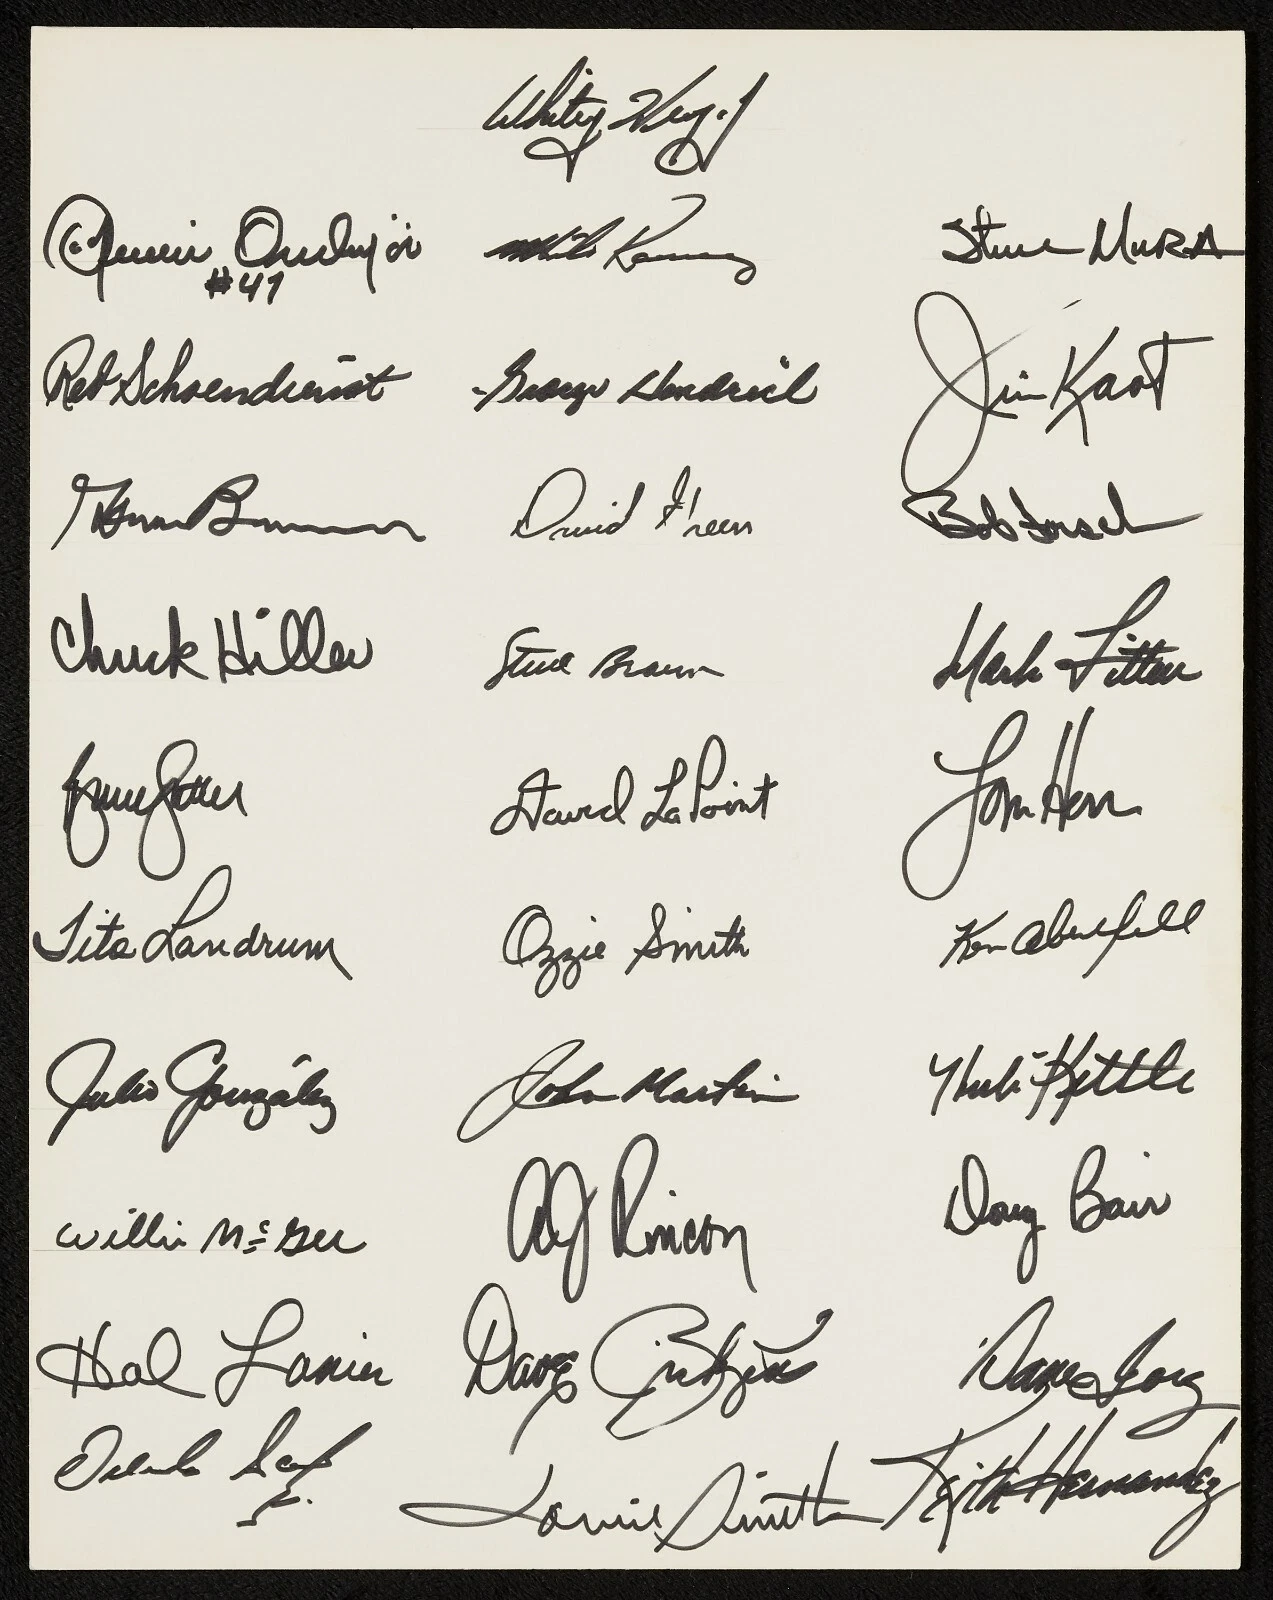 Whitey Herzog
Joaquin Andujar Mike Ramsey Steve Mura
#47
Red Schoendienst George Hendrick Jim Kaat
Glenn Brummer David Green Bob Forsch
Chuck Hiller Steve Braun Mark Littell
Bruce Sutter David LaPoint Tom Herr
Tito Landrum Ozzie Smith Ken Oberkfell
Julio González John Martin Hub Kittle
Willie McGee Andy Rincon Doug Bair
Hal Lanier Dave Ricketts Dane Iorg
Orlando Sanchez
Lonnie Smith Keith Hernandez